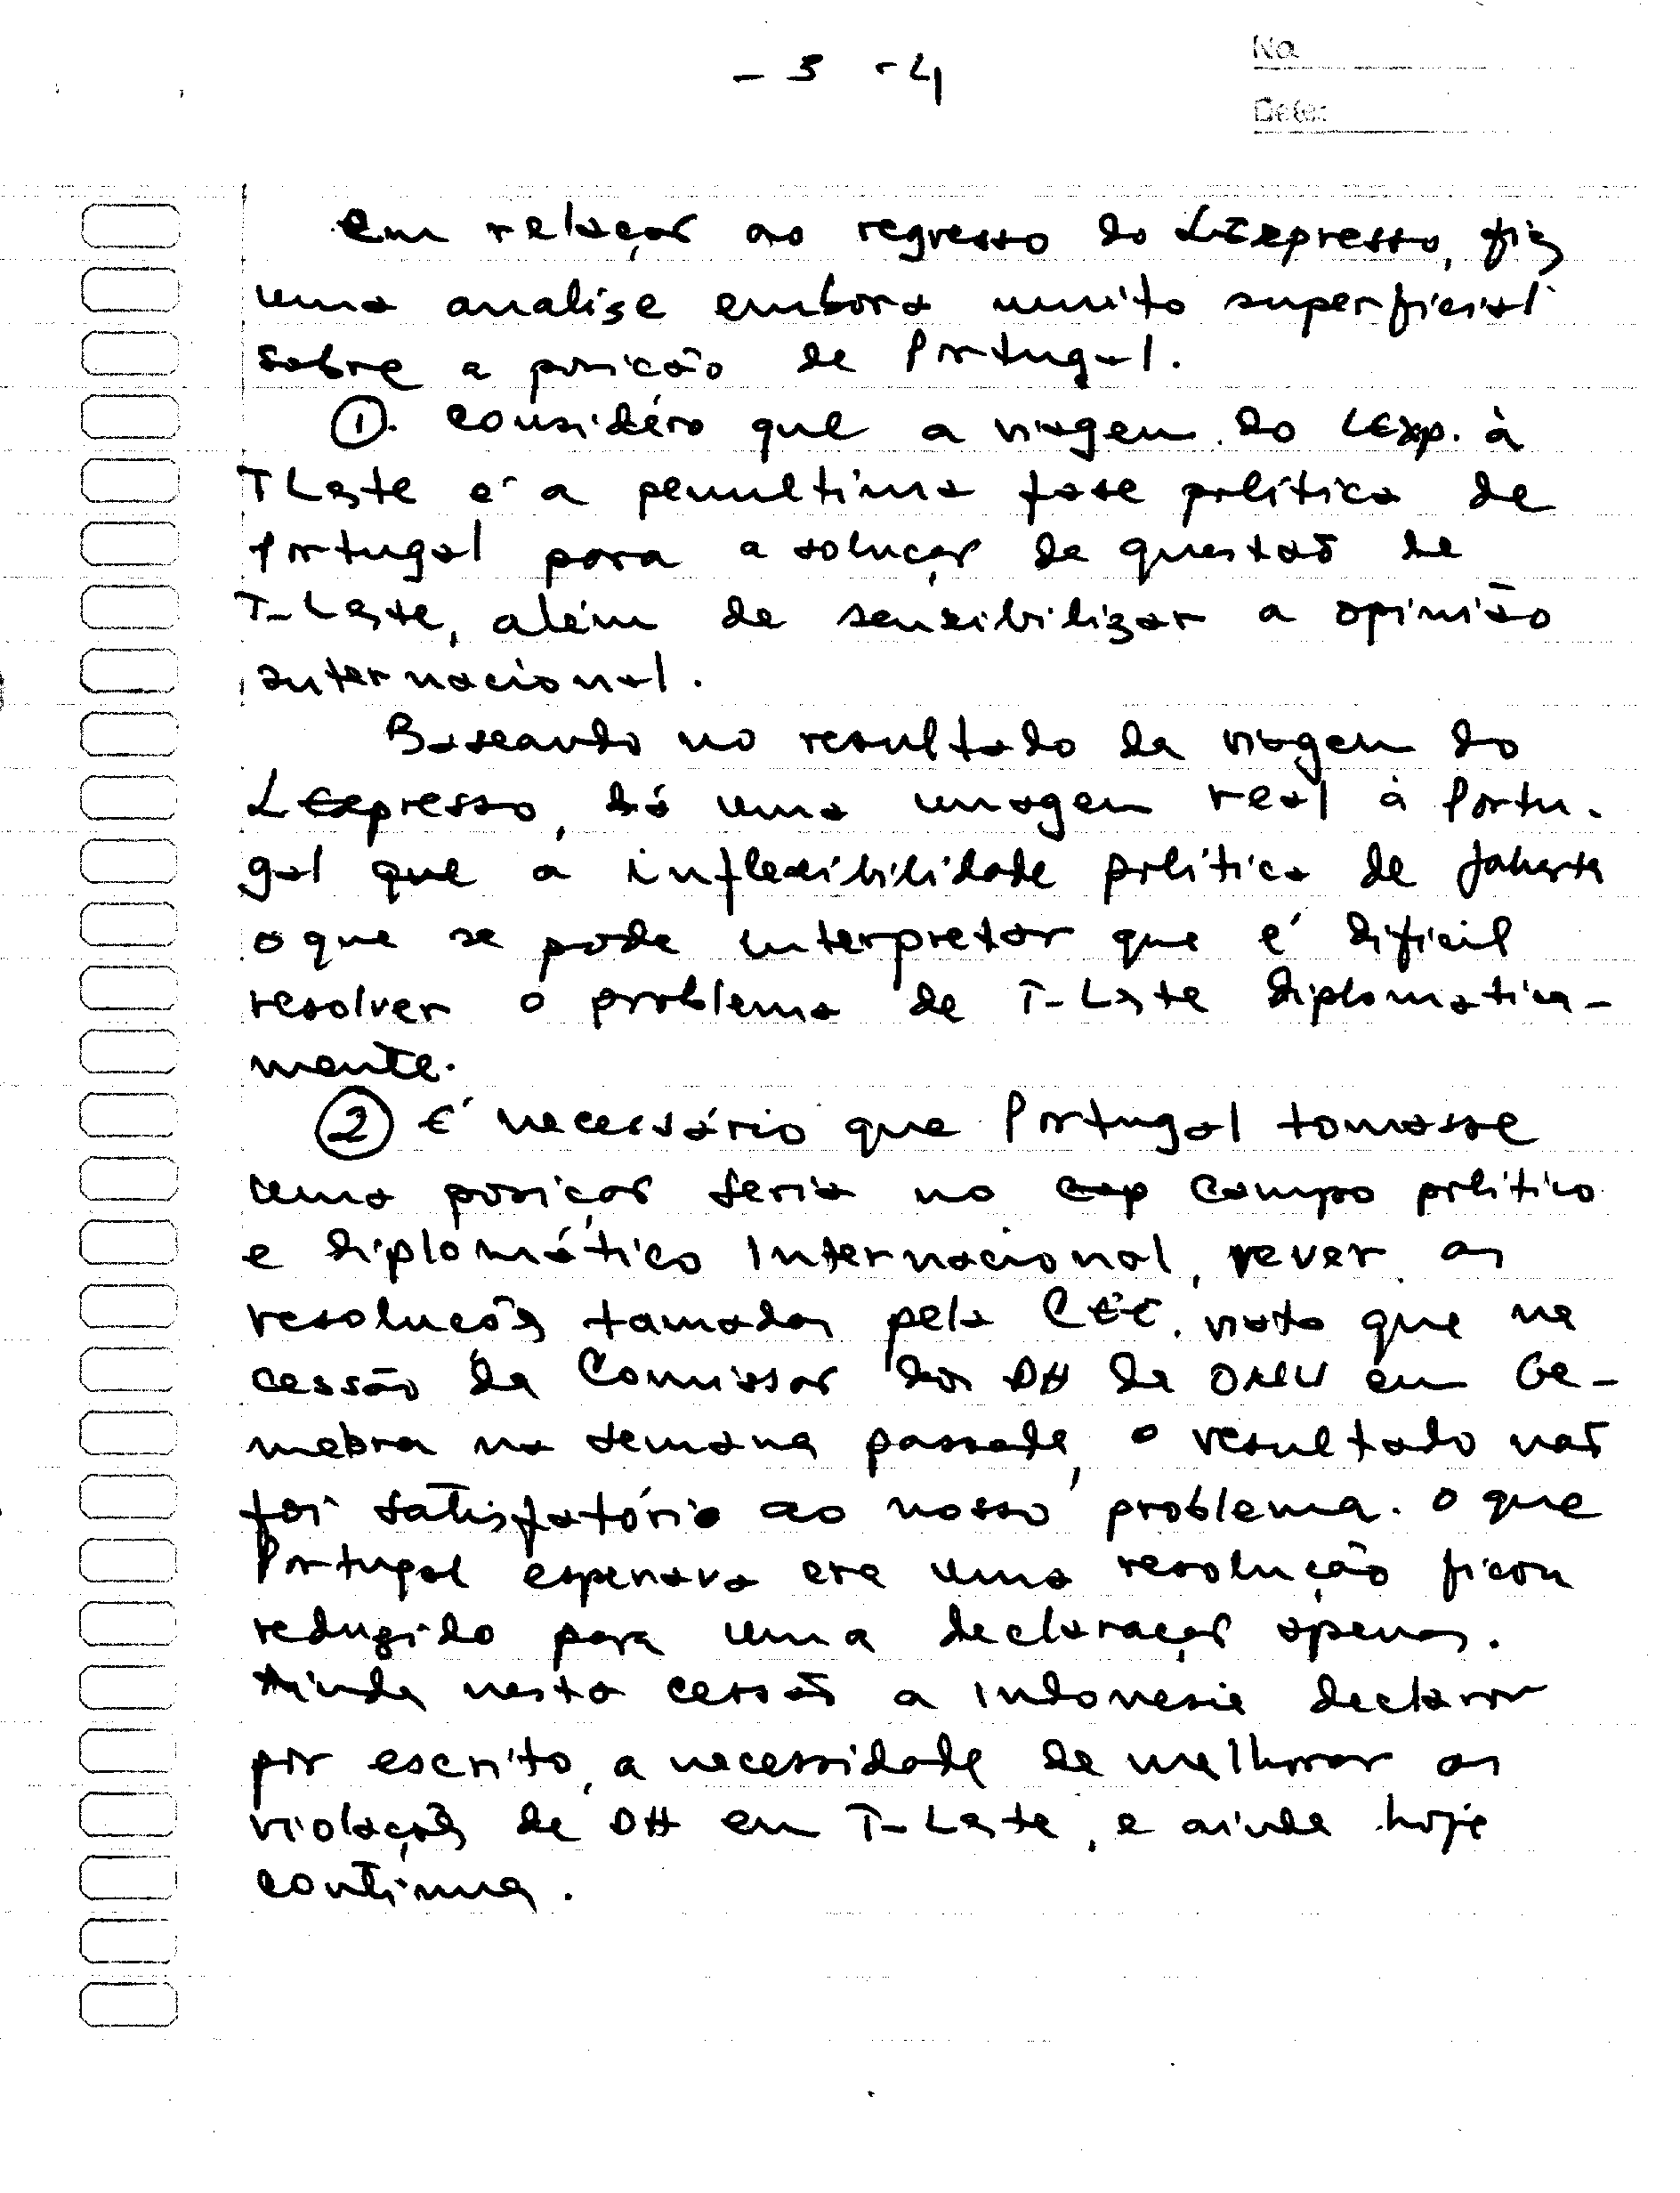 - 3 - 4
No.
Date:
em relação ao regresso do LExpresso, fiz
uma analise embora muito superficial
sobre a posicão de Portugal.
①. considéro que a viagem do LExp. à
TLeste e' a penultima fase politica de
Portugal para a solução da questão de
T-Leste, além de sensibilizar a opinião
internacional.
Baseando no resultado da viagem do
LExpresso, dá uma imagem real à Portu-
gal que a inflexibilidade politica de Jakarta
o que se pode interpretar que é dificil
resolver o problema de T-Leste diplomatica-
mente.
② É necessário que Portugal tomasse
uma posição seria no cap campo politico
e diplomático Internacional, rever as
resoluções tomadas pela CEE, visto que na
cessão da Comissão dos DH da ONU em Ge-
nebra na semana passada, o resultado não
foi satisfatório ao nosso problema. O que
Portugal esperava era uma resolução ficou
reduzido para uma declaração apenas.
Ainda nesta cessão a Indonesia declarou
por escrito, a necessidade de melhorar as
violações de DH em T-Leste, e ainda hoje
continua.